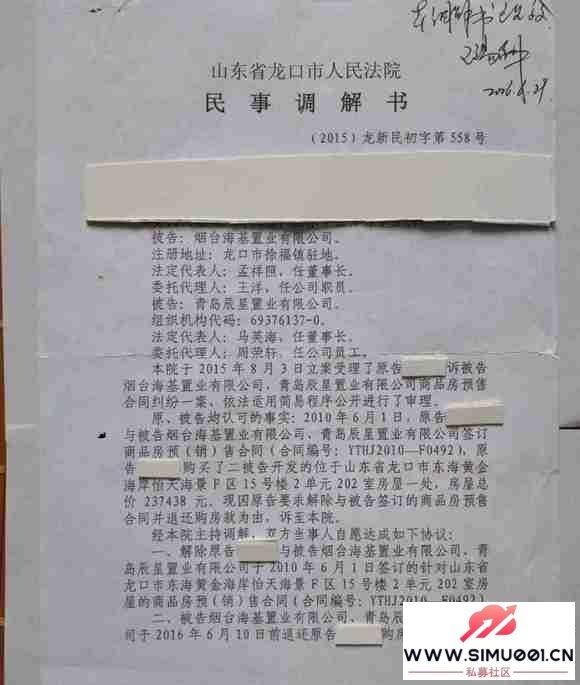 本调解书已生效
2016.4.29
山东省龙口市人民法院
民事调解书
（2015）龙新民初字第558号
被告：烟台海基置业有限公司。
注册地址：龙口市徐福镇驻地。
法定代表人：孟祥照，任董事长。
委托代理人：王洋，任公司职员。
被告：青岛辰星置业有限公司。
组织机构代码：69376137-0。
法定代表人：马英海，任董事长。
委托代理人：周荣轩，任公司员工。
本院于2015年8月3日立案受理了原告 诉被告
烟台海基置业有限公司、青岛辰星置业有限公司商品房预售
合同纠纷一案、依法适用简易程序公开进行了审理。
原、被告均认可的事实：2010年6月1日，原告
与被告烟台海基置业有限公司、青岛辰星置业有限公司签订
商品房预（销）售合同（合同编号：YTHJ2010—F0492），原
告 购买了二被告开发的位于山东省龙口市东海黄金
海岸怡天海景F区15号楼2单元202室房屋一处，房屋总
价237438元，现因原告要求解除与被告签订的商品房预售
合同并退还购房款为由，诉至本院。
经本院主持调解，双方当事人自愿达成如下协议：
一、解除原告 与被告烟台海基置业有限公司、青
岛辰星置业有限公司于2010年6月1日签订的针对山东省
龙口市东海黄金海岸怡天海景F区15号楼2单元202室房
屋的商品房预（销）售合同（合同编号：YTHJ2010—F0492）
二、被告烟台海基置业有限公司、青岛辰
司于2016年6月10日前退还原告 购房
WWW.SIMU001.CN
私募社区